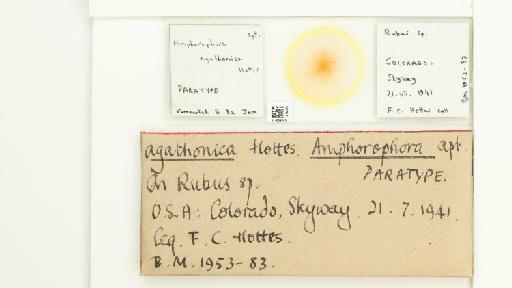 apt.
Amphorophora
agathonica
Hottes
PARATYPE
Rubus sp.
COLORADO:
Skyway
21.vii.1941
F.C. Hottes coll.
BM 1953-83
agathonica Hottes. Amphorophora apt.
PARATYPE.
On Rubus sp.
U.S.A: Colorado, Skyway. 21.7.1941.
Leg. F.C. Hottes.
B.M. 1953-83.